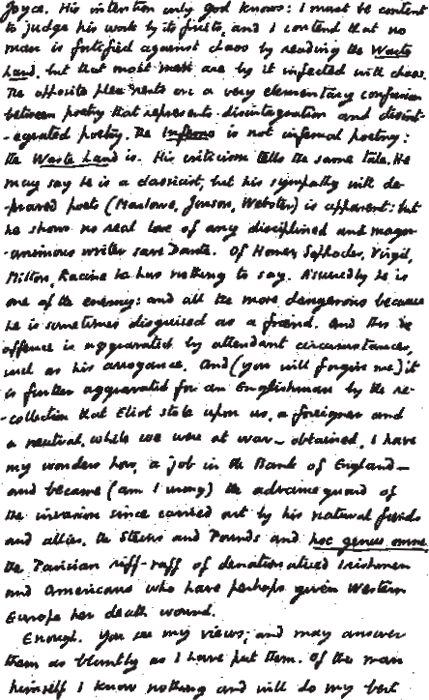 Joyce. His intention only god knows: I must be content
to judge his work by its fruits, and I contend that no
man is fortified against chaos by reading the Waste
Land, but that most men are by it infected with chaos.
The opposite plea rests on a very elementary confusion
between poetry that represents disintegration and disint-
-egrated poetry. The Inferno is not infernal poetry:
the Waste Land is. His criticism tells the same tale. He
may say he is a classicist, but his sympathy with de-
-praved poets (Marlowe, Jonson, Webster) is apparent: but
he shows no real love of any disciplined and magn-
-animous writer save Dante. Of Homer, Sophocles, Virgil,
Milton, Racine he has nothing to say. Assuredly he is
one of the enemy: and all the more dangerous because
he is sometimes disguised as a friend. And this
offence is aggravated by attendant circumstances,
such as his arrogance. And (you will forgive me) it
is further aggravated for an Englishman by the re-
-collection that Eliot stole upon us, a foreigner and
a neutral, while we were at war - obtained, I have
my wonders how, a job in the Bank of England -
and became (am I wrong) the advance guard of
the invasion since carried out by his natural friends
and allies, the Steins and Pounds and hoc genus omne
the Parisian riff-raff of denationalised Irishmen
and Americans who have perhaps given Western
Europe her death wound.
Enough. You see my views; and may answer
them as bluntly as I have put them. Of the man
himself I know nothing and will do my best